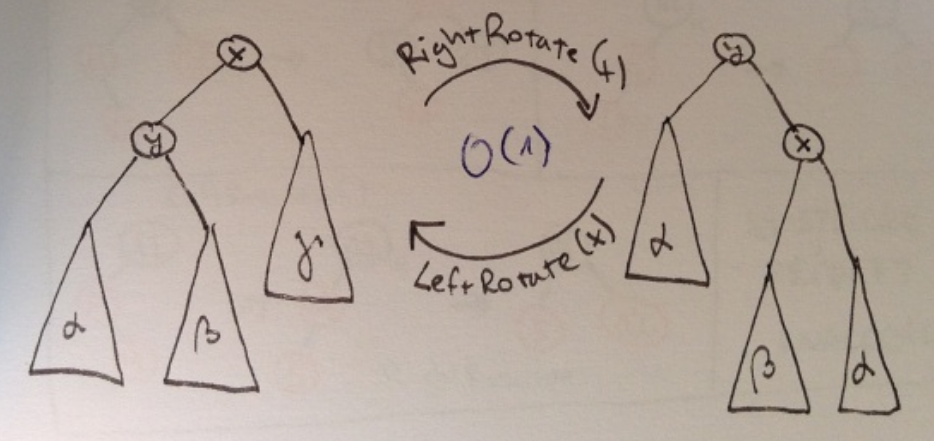 x
y
α
β
γ
RightRotate (x)
O(1)
LeftRotate (x)
y
x
α
β
α